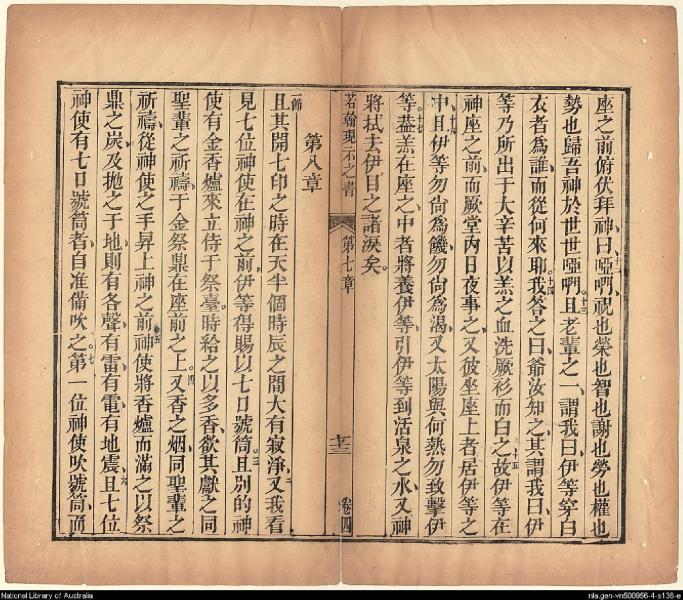 座之前俯伏拜神曰十二啞㗲祝也榮也智也謝也勞也權也
勢也歸吾神於世世啞㗲十三且老輩之一謂我曰伊等穿白
衣者為誰而從何來耶十四我答之曰爺汝知之其謂我曰伊
等乃所出于大辛苦以羔之血洗厥衫而白之十五故伊等在
神座之前而厥堂內日夜事之又彼坐座上者居伊等之
中十六且伊等勿尚為饑勿尚為渴又太陽與何熱勿致擊伊
等十七蓋羔在座之中者將養伊等引伊等到活泉之水又神
將拭去伊目之諸淚矣
若翰現示之書 第七章 十三 卷四
第八章
一節且其開七印之時在天半個時辰之間大有寂淨二又我看
見七位神使在神之前伊等得賜以七口號筒三且別的神
使有金香爐來立侍于祭臺時給之以多香欲其獻之同
聖輩之祈禱于金祭鼎在座前之上四又香之烟同聖輩之
祈禱從神使之手昇上神之前五神使將香爐而滿之以祭
鼎之炭及拋之于地則有各聲有雷有電有地震六且七位
神使有七口號筒者自准備吹之七第一位神使吹號筒而
National Library of Australia
nla.gen-vn500956-4-s136-e